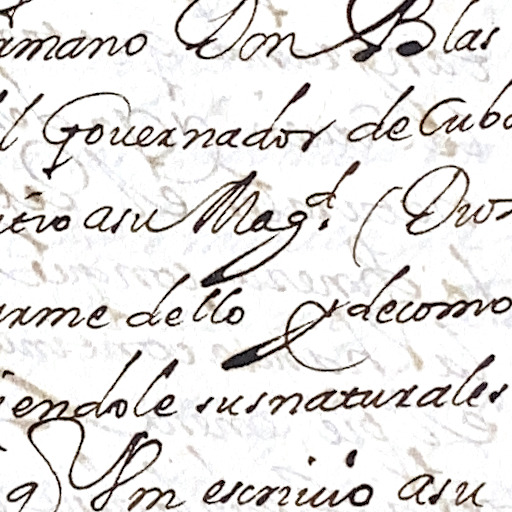 rmano Don Blas
l Governador de Cuba
itio asu Magd. (Dios
arme dello y decomo
iendole susnaturales
q Vm escriuio asu